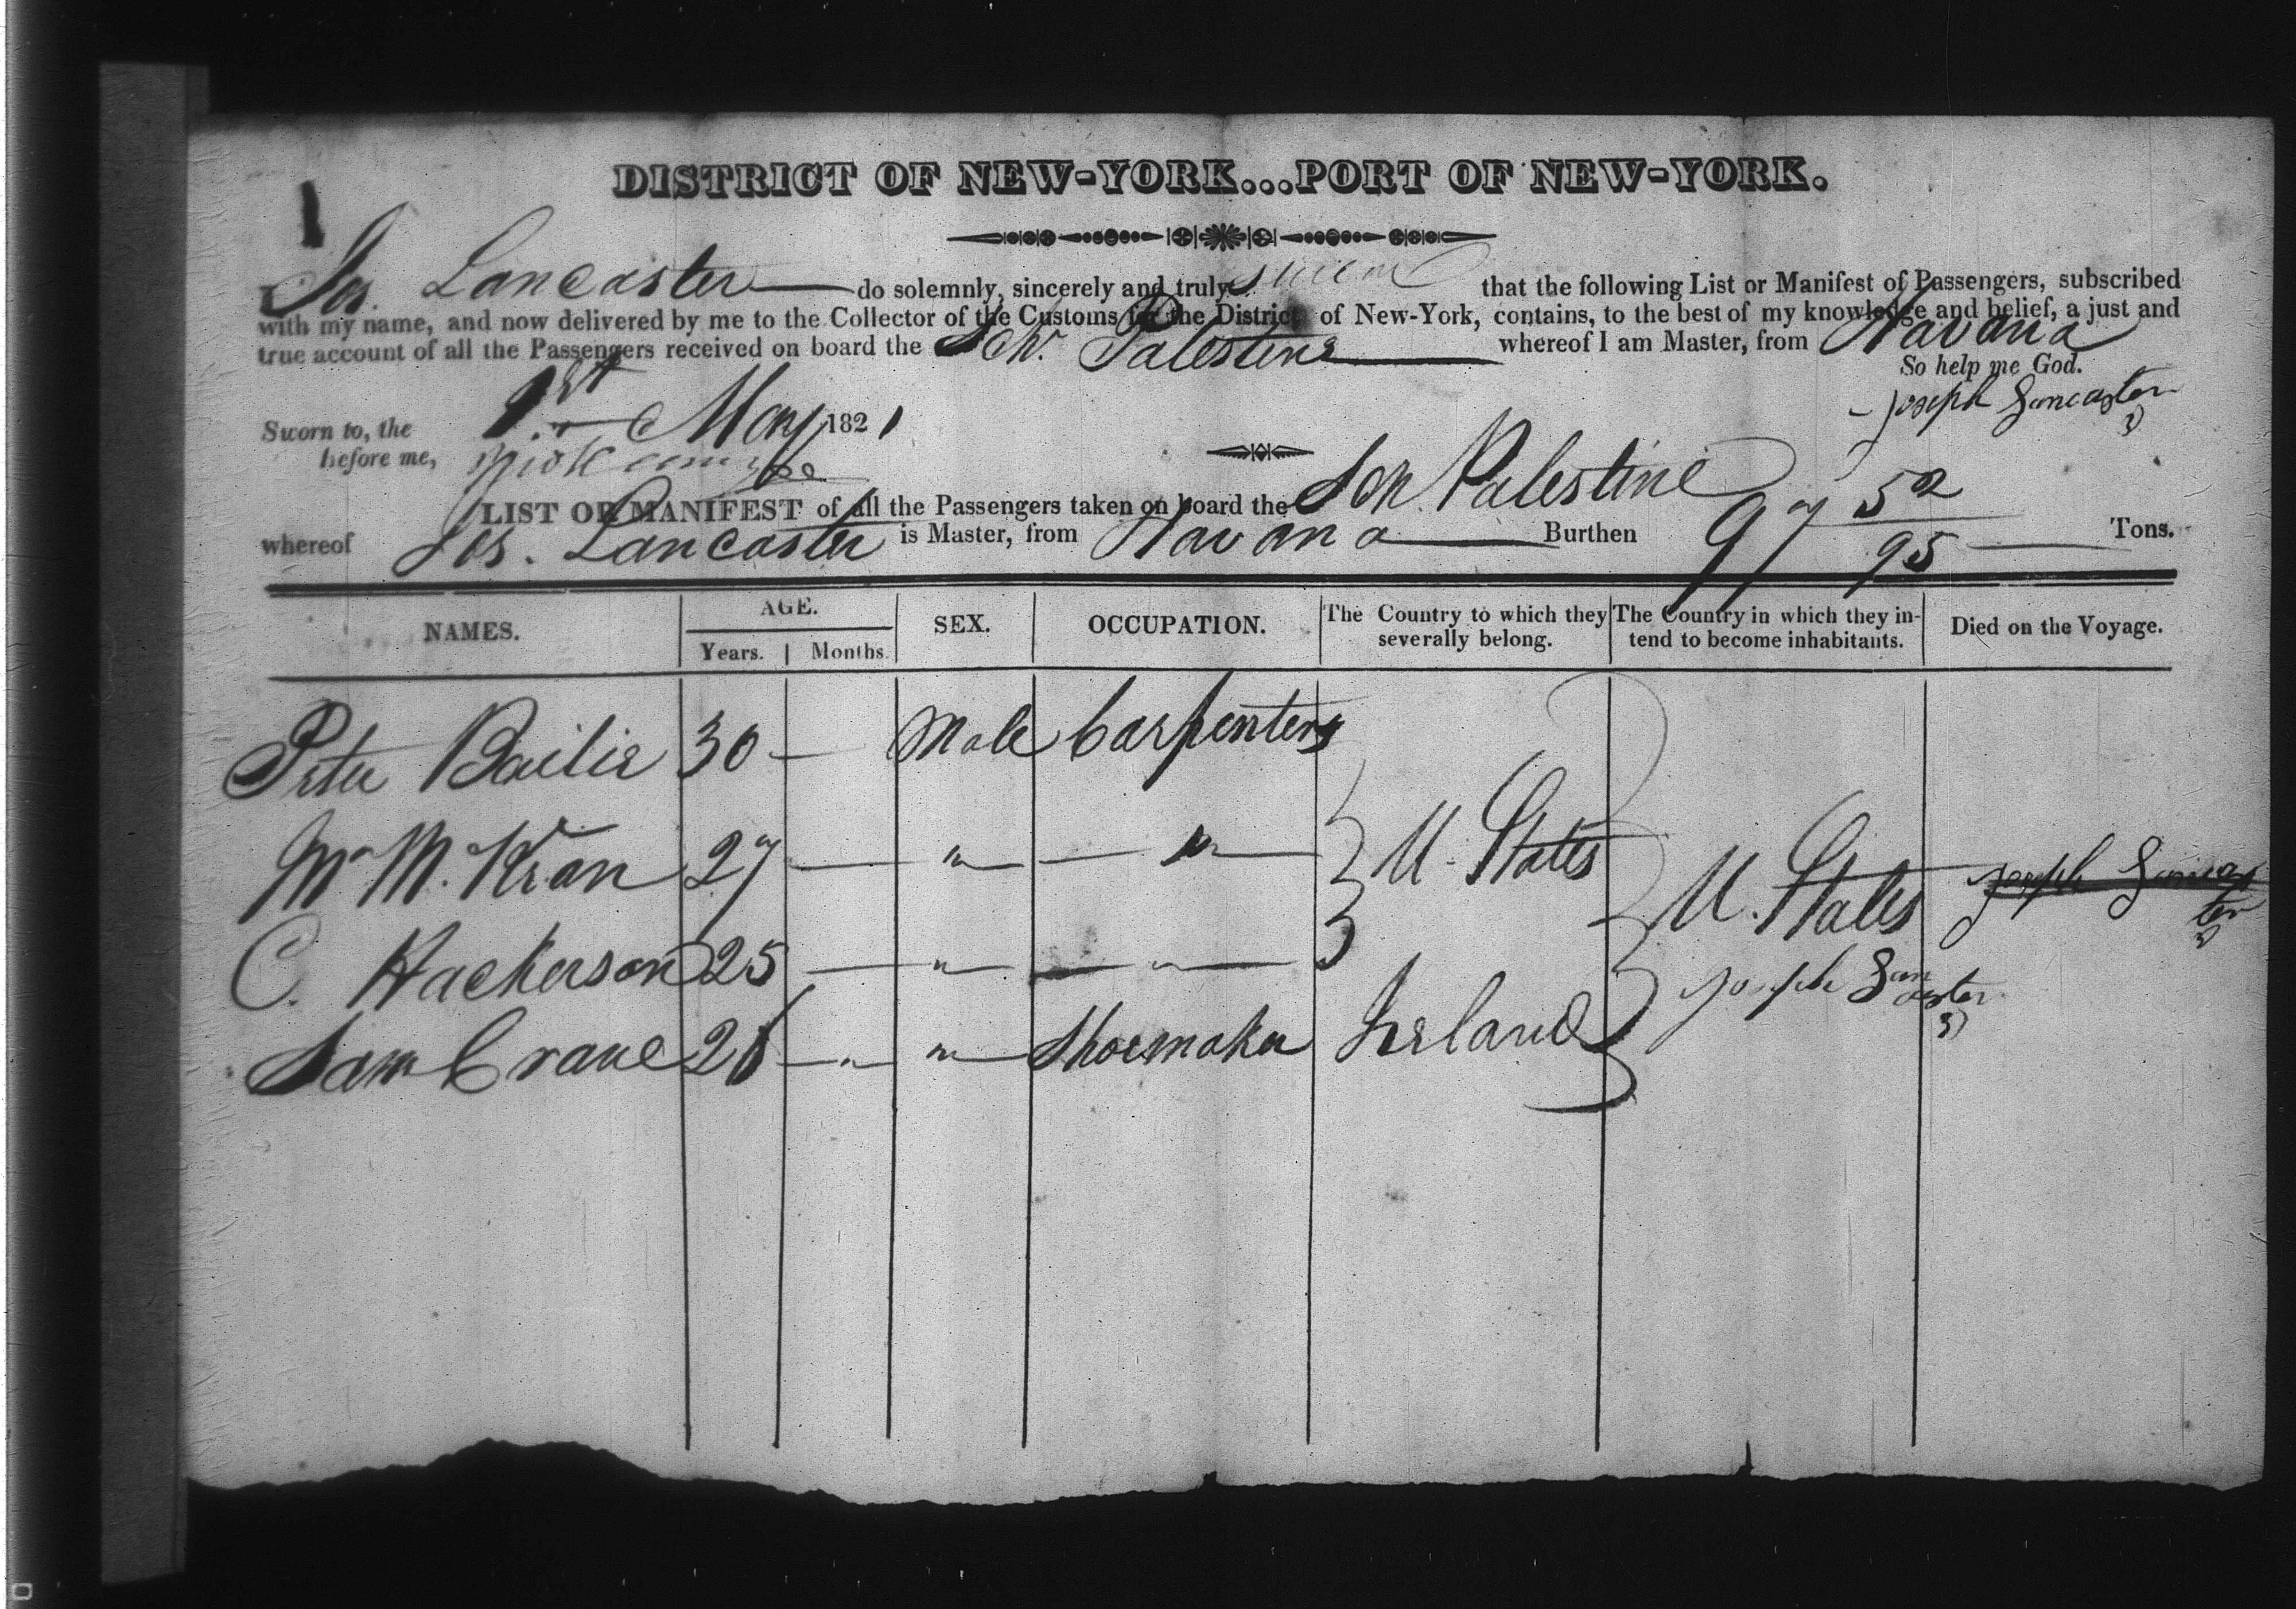 1
DISTRICT OF NEW-YORK...PORT OF NEW-YORK.
I Jos. Lancaster do solemnly, sincerely and truly swear that the following List or Manifest of Passengers, subscribed
with my name, and now delivered by me to the Collector of the Customs for the District of New-York, contains, to the best of my knowledge and belief, a just and
true account of all the Passengers received on board the Schr. Palestine whereof I am Master, from Havana
So help me God.
Joseph Lancaster
Sworn to, the 1st May 1821
before me,
LIST OR MANIFEST of all the Passengers taken on board the Sch Palestine
whereof Jos. Lancaster is Master, from Havana Burthen 97 52/95 Tons.
NAMES. AGE. SEX. OCCUPATION. The Country to which they severally belong. The Country in which they intend to become inhabitants. Died on the Voyage.
Years. Months.
Peter Bailie 30 — Male Carpenters
Mr M. Kran 27 — " — " — U. States U. States Joseph Lancaster
C. Hackerson 25 — " — " —
Joseph Lancaster
Sam Crane 26 — " — " — Shoemaker Ireland